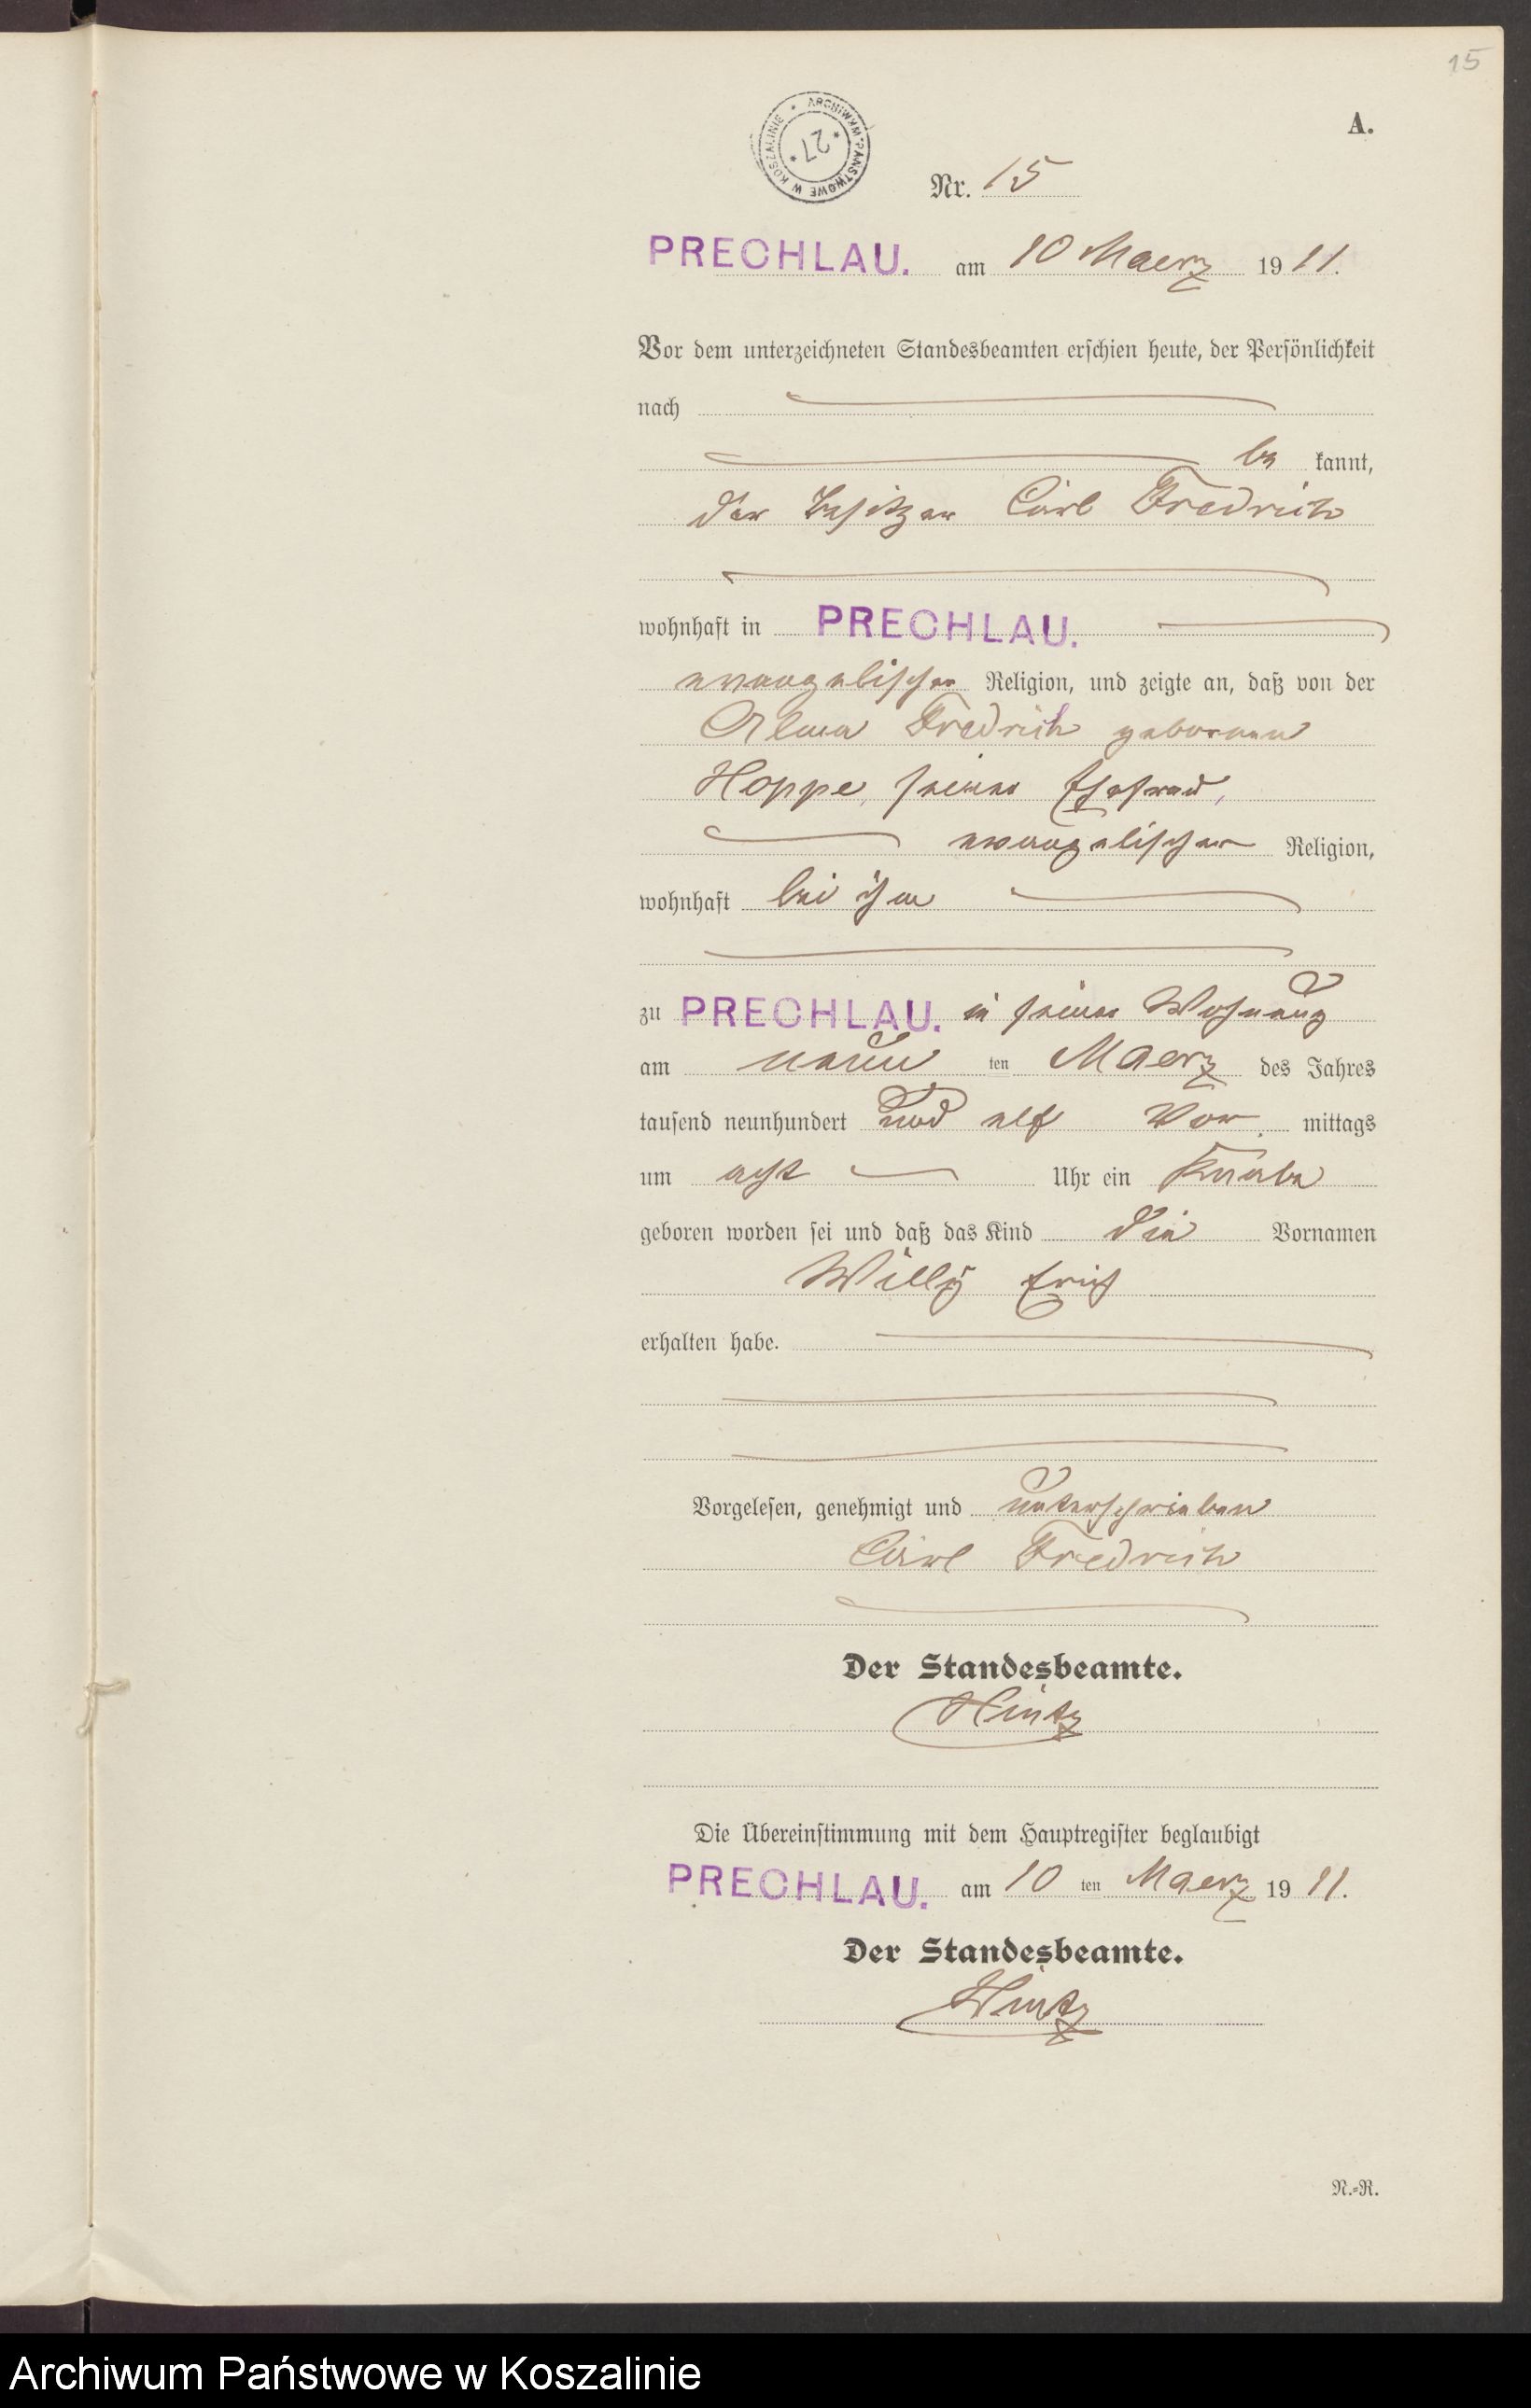 15
A.
ARCHIWUM PAŃSTWOWE W KOSZALINIE * 27 *
Nr. 15
PRECHLAU. am 10 Maerz 1911.
Vor dem unterzeichneten Standesbeamten erschien heute, der Persönlichkeit
nach
be kannt,
der Besitzer Carl Fredrich
wohnhaft in PRECHLAU.
evangelischer Religion, und zeigte an, daß von der
Alma Fredrich geborenen
Hoppe, seiner Ehefrau,
evangelischer Religion,
wohnhaft bei ihm
zu PRECHLAU. in seiner Wohnung
am neun ten Maerz des Jahres
tausend neunhundert und elf Vor mittags
um acht Uhr ein Knabe
geboren worden sei und daß das Kind die Vornamen
Willy Erich
erhalten habe.
Vorgelesen, genehmigt und unterschrieben
Carl Fredrich
Der Standesbeamte.
Hintz
Die Übereinstimmung mit dem Hauptregister beglaubigt
PRECHLAU. am 10 ten Maerz 1911.
Der Standesbeamte.
Hintz
N.=R.
Archiwum Państwowe w Koszalinie